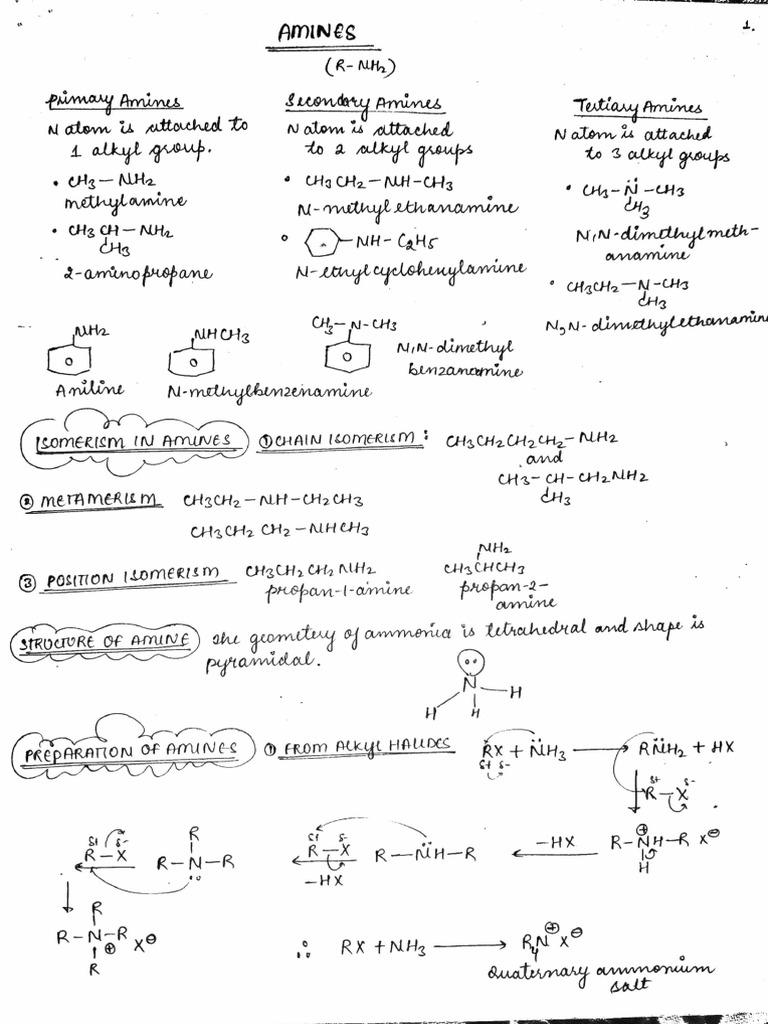 1.
AMINES
(R-NH2)
Primary Amines
N atom is attached to
1 alkyl group.
• CH3-NH2
methylamine
• CH3CH-NH2
CH3
2-aminopropane
Secondary Amines
N atom is attached
to 2 alkyl groups
• CH3CH2-NH-CH3
N-methylethanamine
-NH-C2H5
N-ethylcyclohenylamine
Tertiary Amines
N atom is attached
to 3 alkyl groups
• CH3-N̈-CH3
CH3
N,N-dimethylmeth-
anamine
• CH3CH2-N-CH3
CH3
N,N-dimethylethanamine
NH2
Aniline
NHCH3
N-methylbenzenamine
CH3-N-CH3
N,N-dimethyl
benzanamine
ISOMERISM IN AMINES ① CHAIN ISOMERISM: CH3CH2CH2CH2-NH2
and
CH3-CH-CH2NH2
CH3
② METAMERISM CH3CH2-NH-CH2CH3
CH3CH2CH2-NHCH3
③ POSITION ISOMERISM CH3CH2CH2NH2
propan-1-amine
NH2
CH3CHCH3
propan-2-
amine
STRUCTURE OF AMINE The geometery of ammonia is tetrahedral and shape is
pyramidal.
N
H H H
PREPARATION OF AMINES ① FROM ALKYL HALIDES RX + N̈H3 → RN̈H2 + HX
δ+ δ-
δ+ δ-
R-X
R-N⊕H-R X⊖
H
-HX
R-N̈H-R
δ+ δ-
R-X
-HX
R
R-N-R
δ+ δ-
R-X
R
R-N-R
⊕ X⊖
R
∴ RX + NH3 → R4N⊕ X⊖
quaternary ammonium
salt